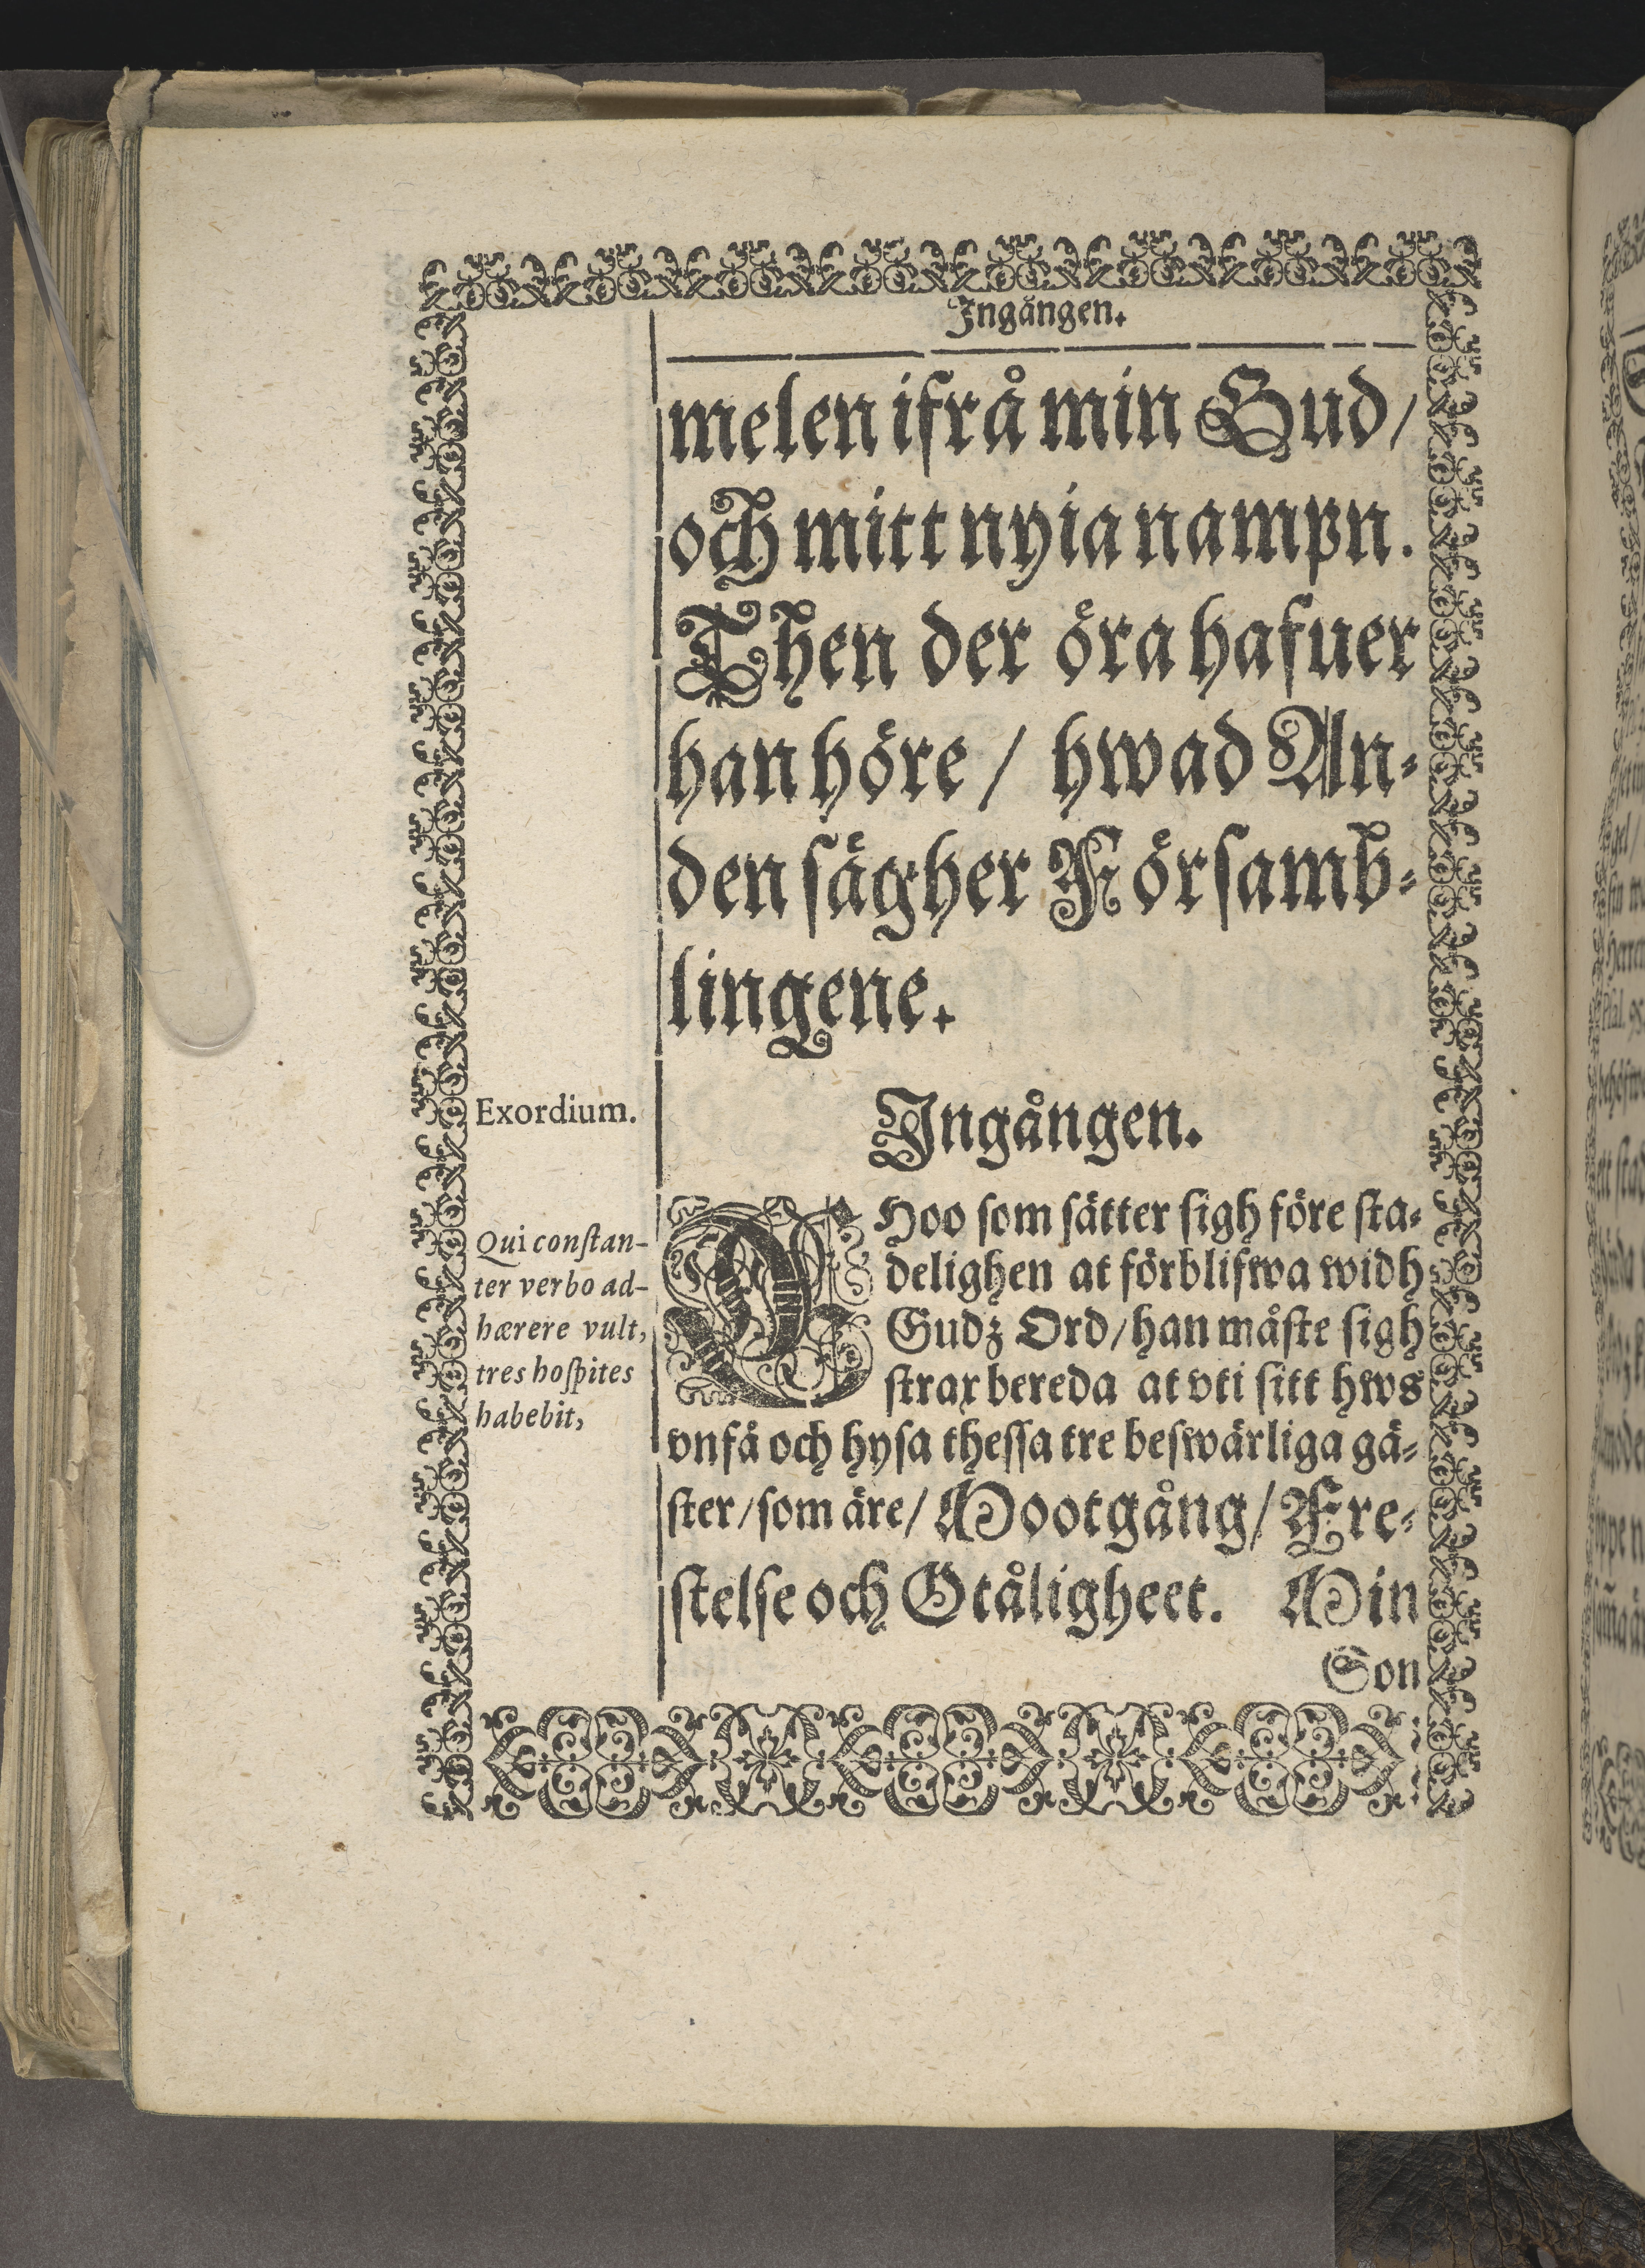 Ingången.
melen ifrå min Gud/
och mitt nyia nampn.
Then der öra hafuer
han höre / hwad An⸗
den sägher Församb⸗
lingene.
Exordium.
Ingången.
Qui conſtan-
ter verbo ad-
hærere vult,
tres hoſpites
habebit,
HOo som sätter sigh före sta⸗
delighen at förblifwa widh
Gudz Ord/han måste sigh
strax bereda at vti sitt hws
vnfå och hysa thessa tre beswärliga gä⸗
ster/som äre/Mootgång/Fre⸗
stelse och Otåligheet. Min
Son